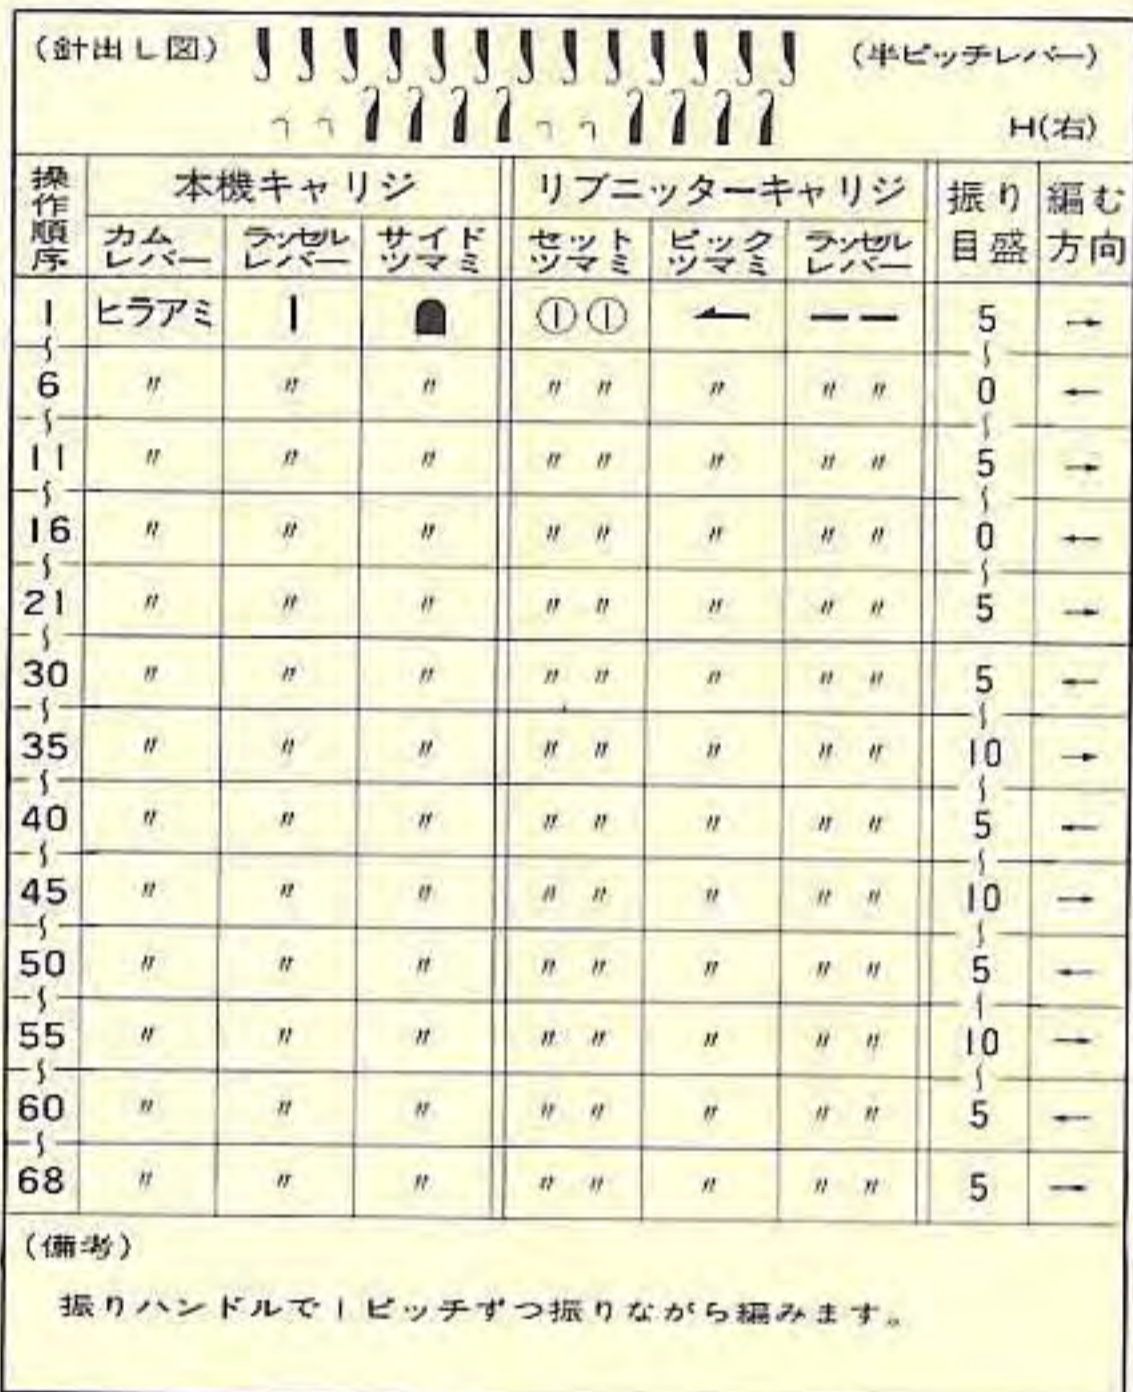 (針出し図) (半ピッチレバー)
H(右)
操作順序 本機キャリジ リブニッターキャリジ 振り目盛 編む方向
カムレバー ラッセルレバー サイドツマミ セットツマミ ピックツマミ ラッセルレバー
1 ヒラアミ | ① ① — — 5 →
~ ~
6 〃 〃 〃 〃 〃 〃 〃 〃 0 ←
~ ~
11 〃 〃 〃 〃 〃 〃 〃 〃 5 →
~ ~
16 〃 〃 〃 〃 〃 〃 〃 〃 0 ←
~ ~
21 〃 〃 〃 〃 〃 〃 〃 〃 5 →
~
30 〃 〃 〃 〃 〃 〃 〃 〃 5 ←
~ ~
35 〃 〃 〃 〃 〃 〃 〃 〃 10 →
~ ~
40 〃 〃 〃 〃 〃 〃 〃 〃 5 ←
~ ~
45 〃 〃 〃 〃 〃 〃 〃 〃 10 →
~ ~
50 〃 〃 〃 〃 〃 〃 〃 〃 5 ←
~ ~
55 〃 〃 〃 〃 〃 〃 〃 〃 10 →
~ ~
60 〃 〃 〃 〃 〃 〃 〃 〃 5 ←
~
68 〃 〃 〃 〃 〃 〃 〃 〃 5 →
(備考)
振りハンドルで1ピッチずつ振りながら編みます。